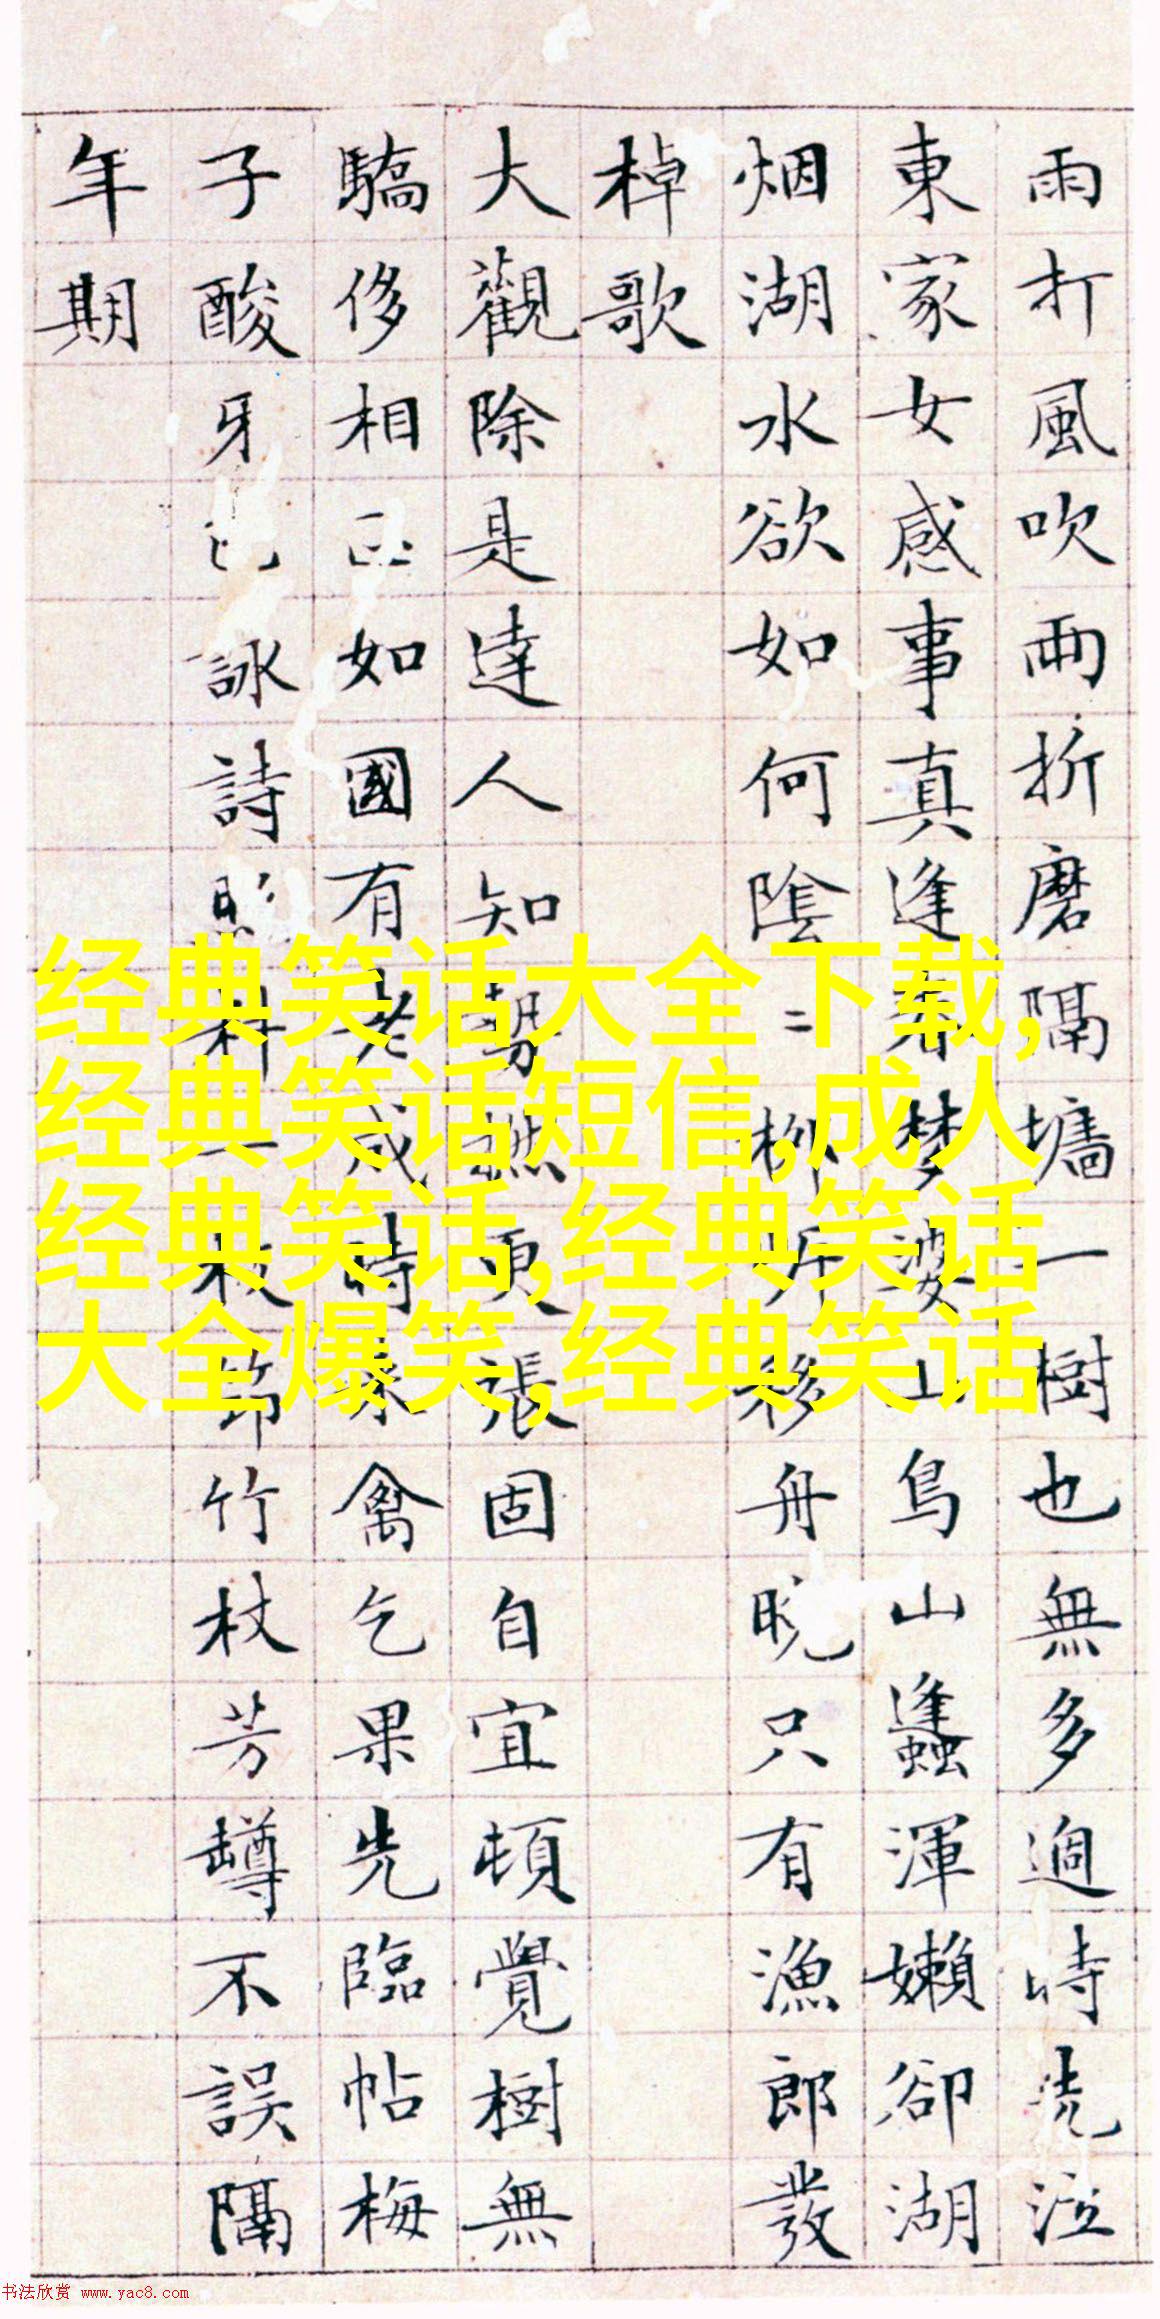 雨打風吹雨折磨隔墻一樹也無多過時洗泣
東家女感事真逢春梦婆山鳥山蠭渾嬾卻湖
烟湖水欲如何陰〻柳外移舟晚只有漁郎發
棹歌
大觀除是達人知勢撚更張固自宜頓覺樹無
驕侈相如國有老成時來禽乞果先臨帖梅
子酸牙詠詩科一枝笻竹杖芳罇不誤隔
年期
经典笑话大全下载,
经典笑话短信,成人
经典笑话,经典笑话
大全爆笑,经典笑话
书法欣赏 www.yac8.com